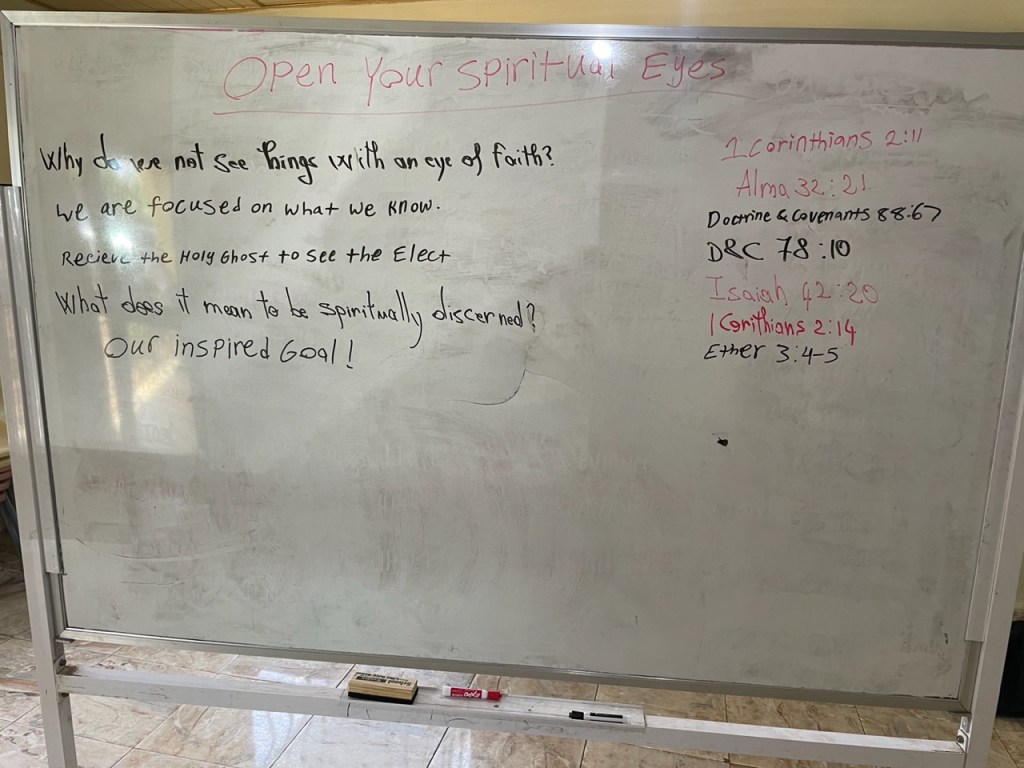 Open Your Spiritual Eyes
Why do we not see things with an eye of faith?
we are focused on what we know.
Recieve the Holy Ghost to see the Elect
What does it mean to be spiritually discerned?
Our inspired Goal!
1 Corinthians 2:11
Alma 32:21
Doctrine & Covenants 88:67
D&C 78:10
Isaiah 42:20
1 Corithians 2:14
Ether 3:4-5
EXPO